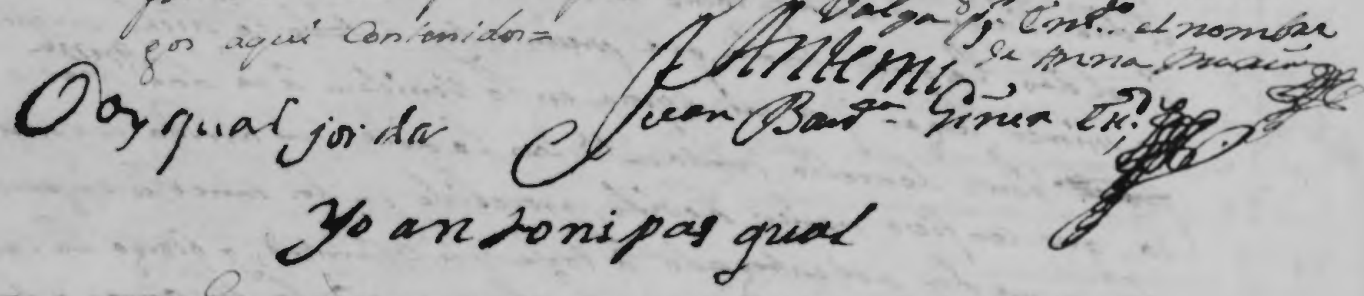 gos aqui contenidos=
Valga el nombre
de Anna Maria
Antemi
Pasqual jorda
Juan Baut.ta
Yo antoni pasqual